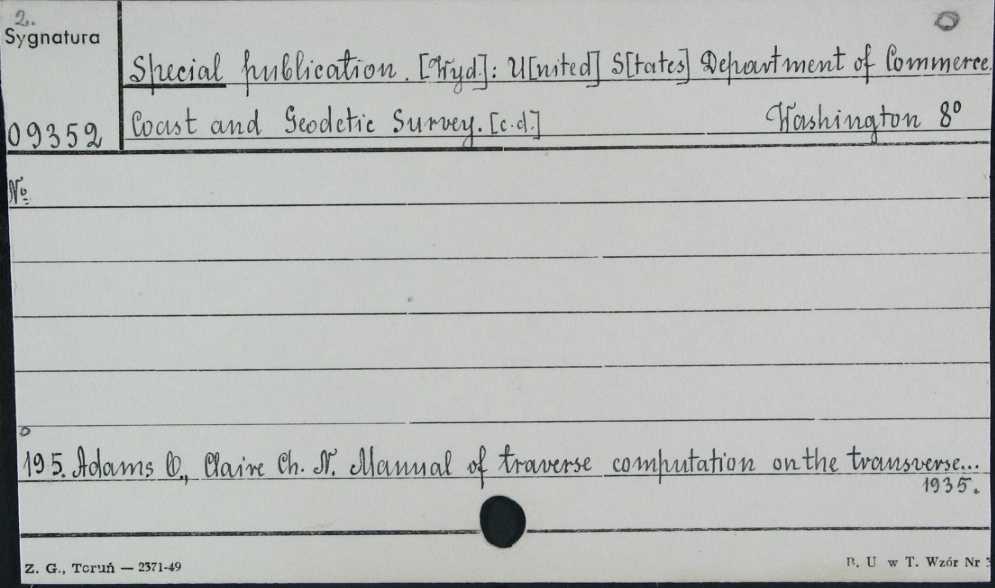 2.
Sygnatura
Special publication. [Wyd.]: U[nited] S[tates] Department of Commerce.
09352
Coast and Geodetic Survey. [c.d.] Washington 8°
№
195. Adams O., Claire Ch. N. Manual of traverse computation on the transverse...
1935.
Z. G., Toruń — 2371-49
B. U w T. Wzór Nr 3